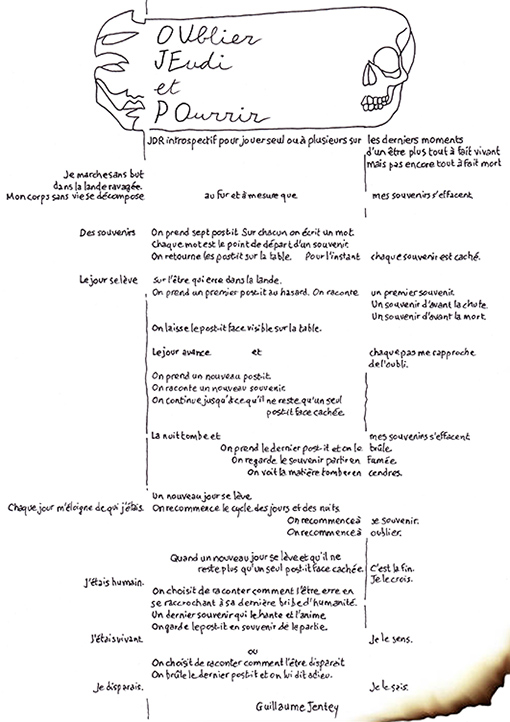 OUblier
JEudi
et
POurrir
JDR introspectif pour jouer seul ou à plusieurs sur les derniers moments
d'un être plus tout à fait vivant
mais pas encore tout à fait mort
Je marche sans but
dans la lande ravagée.
Mon corps sans vie se décompose au fur et à mesure que mes souvenirs s'effacent
Des souvenirs On prend sept post-it Sur chacun on écrit un mot.
Chaque mot est le point de départ d'un souvenir.
On retourne les post-it sur la table. Pour l'instant chaque souvenir est caché.
Le jour se lève sur l'être qui erre dans la lande.
On prend un premier post-it au hasard. On raconte un premier souvenir.
Un souvenir d'avant la chute.
Un souvenir d'avant la mort.
On laisse le post-it face visible sur la table.
Le jour avance et chaque pas me rapproche
de l'oubli.
On prend un nouveau post-it.
On raconte un nouveau souvenir.
On continue jusqu'à ce qu'il ne reste qu'un seul
post-it face cachée.
La nuit tombe et mes souvenirs s'effacent
On prend le dernier post-it et on le brûle.
On regarde le souvenir partir en fumée.
On voit la matière tomber en cendres.
Un nouveau jour se lève.
Chaque jour m'éloigne de qui j'étais. On recommence le cycle des jours et des nuits.
On recommence à se souvenir.
On recommence à oublier.
Quand un nouveau jour se lève et qu'il ne
reste plus qu'un seul post-it face cachée. C'est la fin.
Je le crois.
J'étais humain.
On choisit de raconter comment l'être erre en
se raccrochant à sa dernière bribe d'humanité.
Un dernier souvenir qui le hante et l'anime.
On garde le post-it en souvenir de la partie.
J'étais vivant. Je le sens.
ou
On choisit de raconter comment l'être disparait
On brûle le dernier post-it et on lui dit adieu.
Je disparais. Je le sais.
Guillaume Jentey